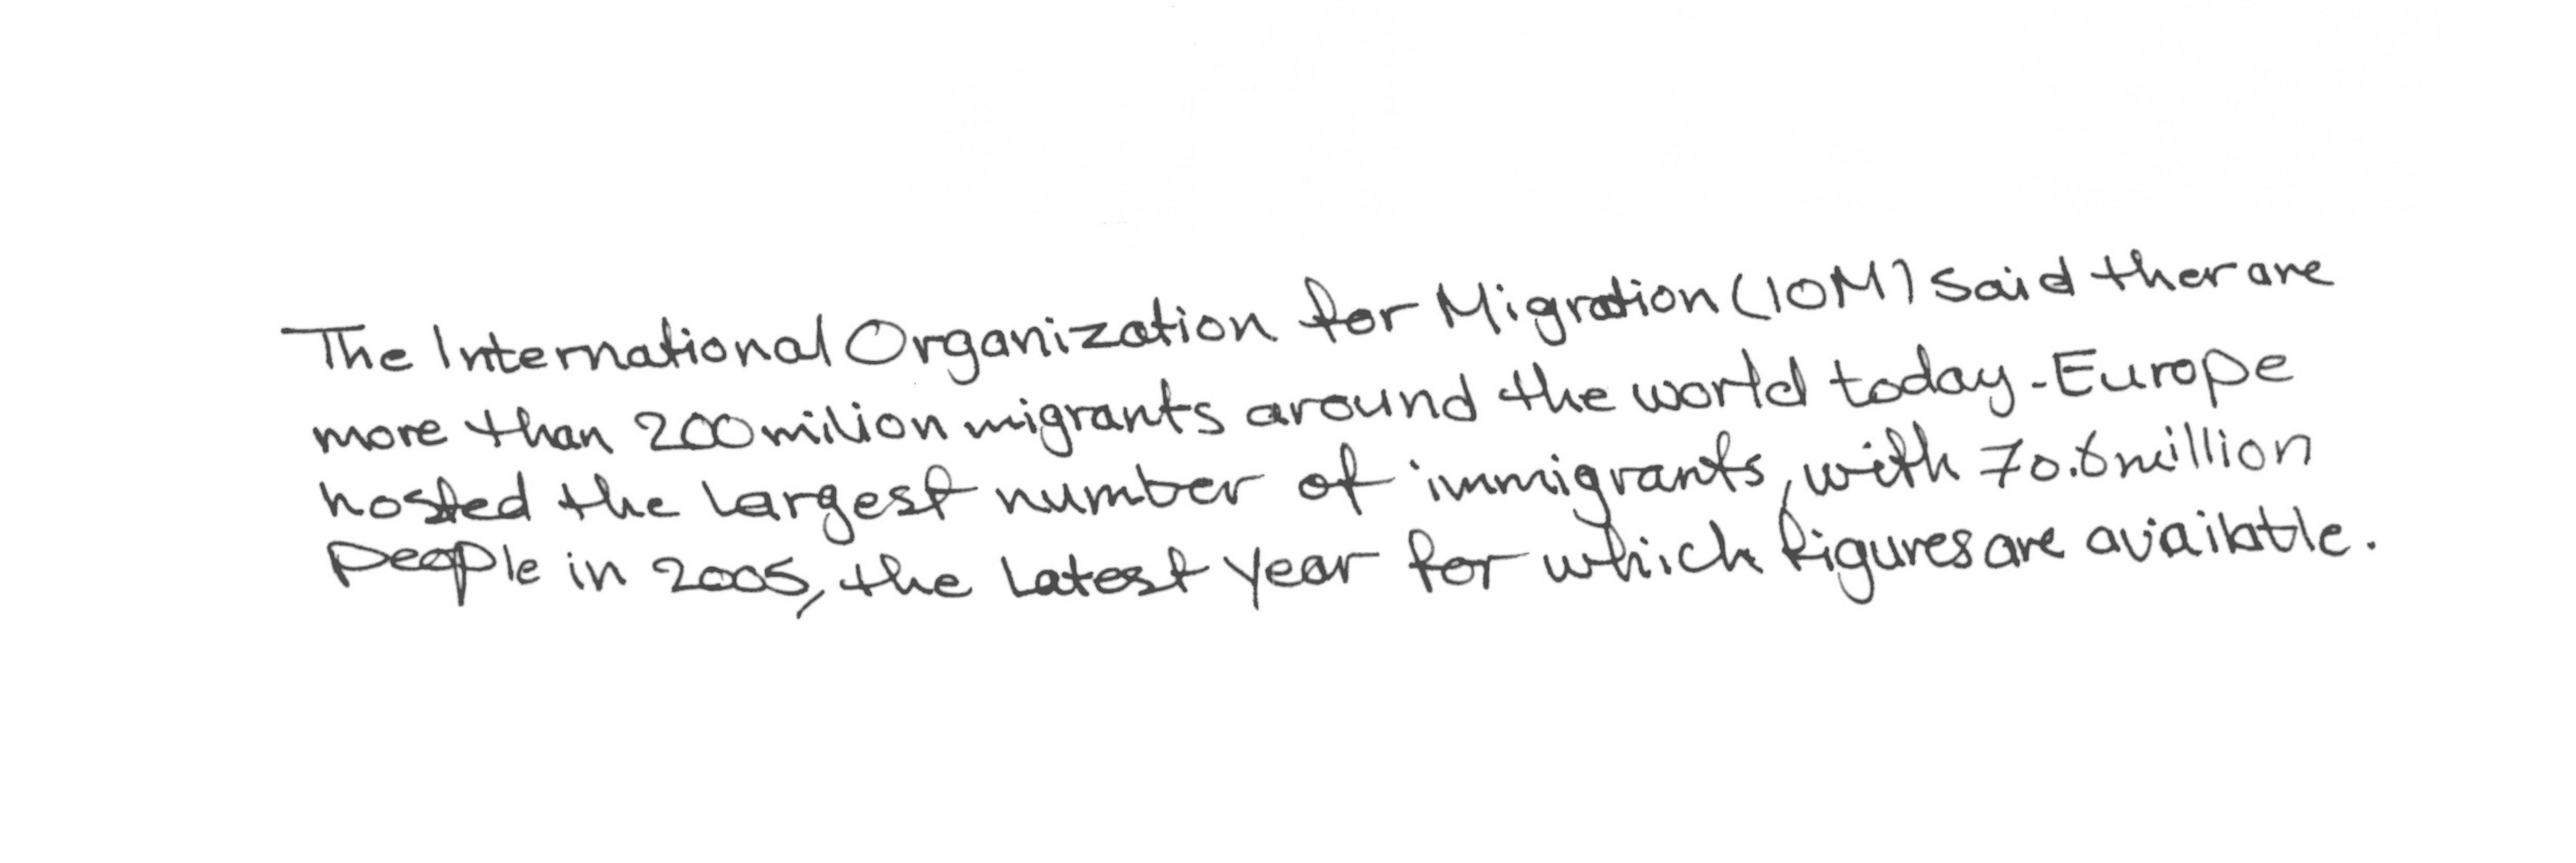 The International Organization for Migration (IOM) said ther are
more than 200 milion migrants around the world today-Europe
hosted the largest number of immigrants, with 70.6 million
people in 2005, the latest year for which figures are available.